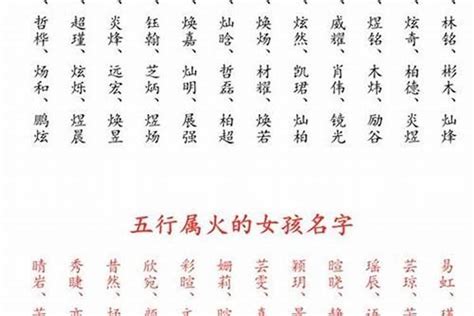 林铭、彬木、灿烽
炫奇、柏德、炎煜
煜铭、木炜、励谷
威耀、肖伟、镜光
炫然、凯珺、灿焕
焕炀、材耀、焕若
灿晗、哲磊、柏超
焕嘉、灿明、展强
钰翰、芝炳、煜炀
炎烽、远宏、焕昱
超瑾、炫烁、煜晨
哲桦、炀和、鹏炫
五行属火的女孩名字
易虹、
芸琼、
瑶辰、
暄晓、
颖玥、
芸雯、
姗莉、
彩暄、
欣宛、
昔然、
秀睫、
晴岩、